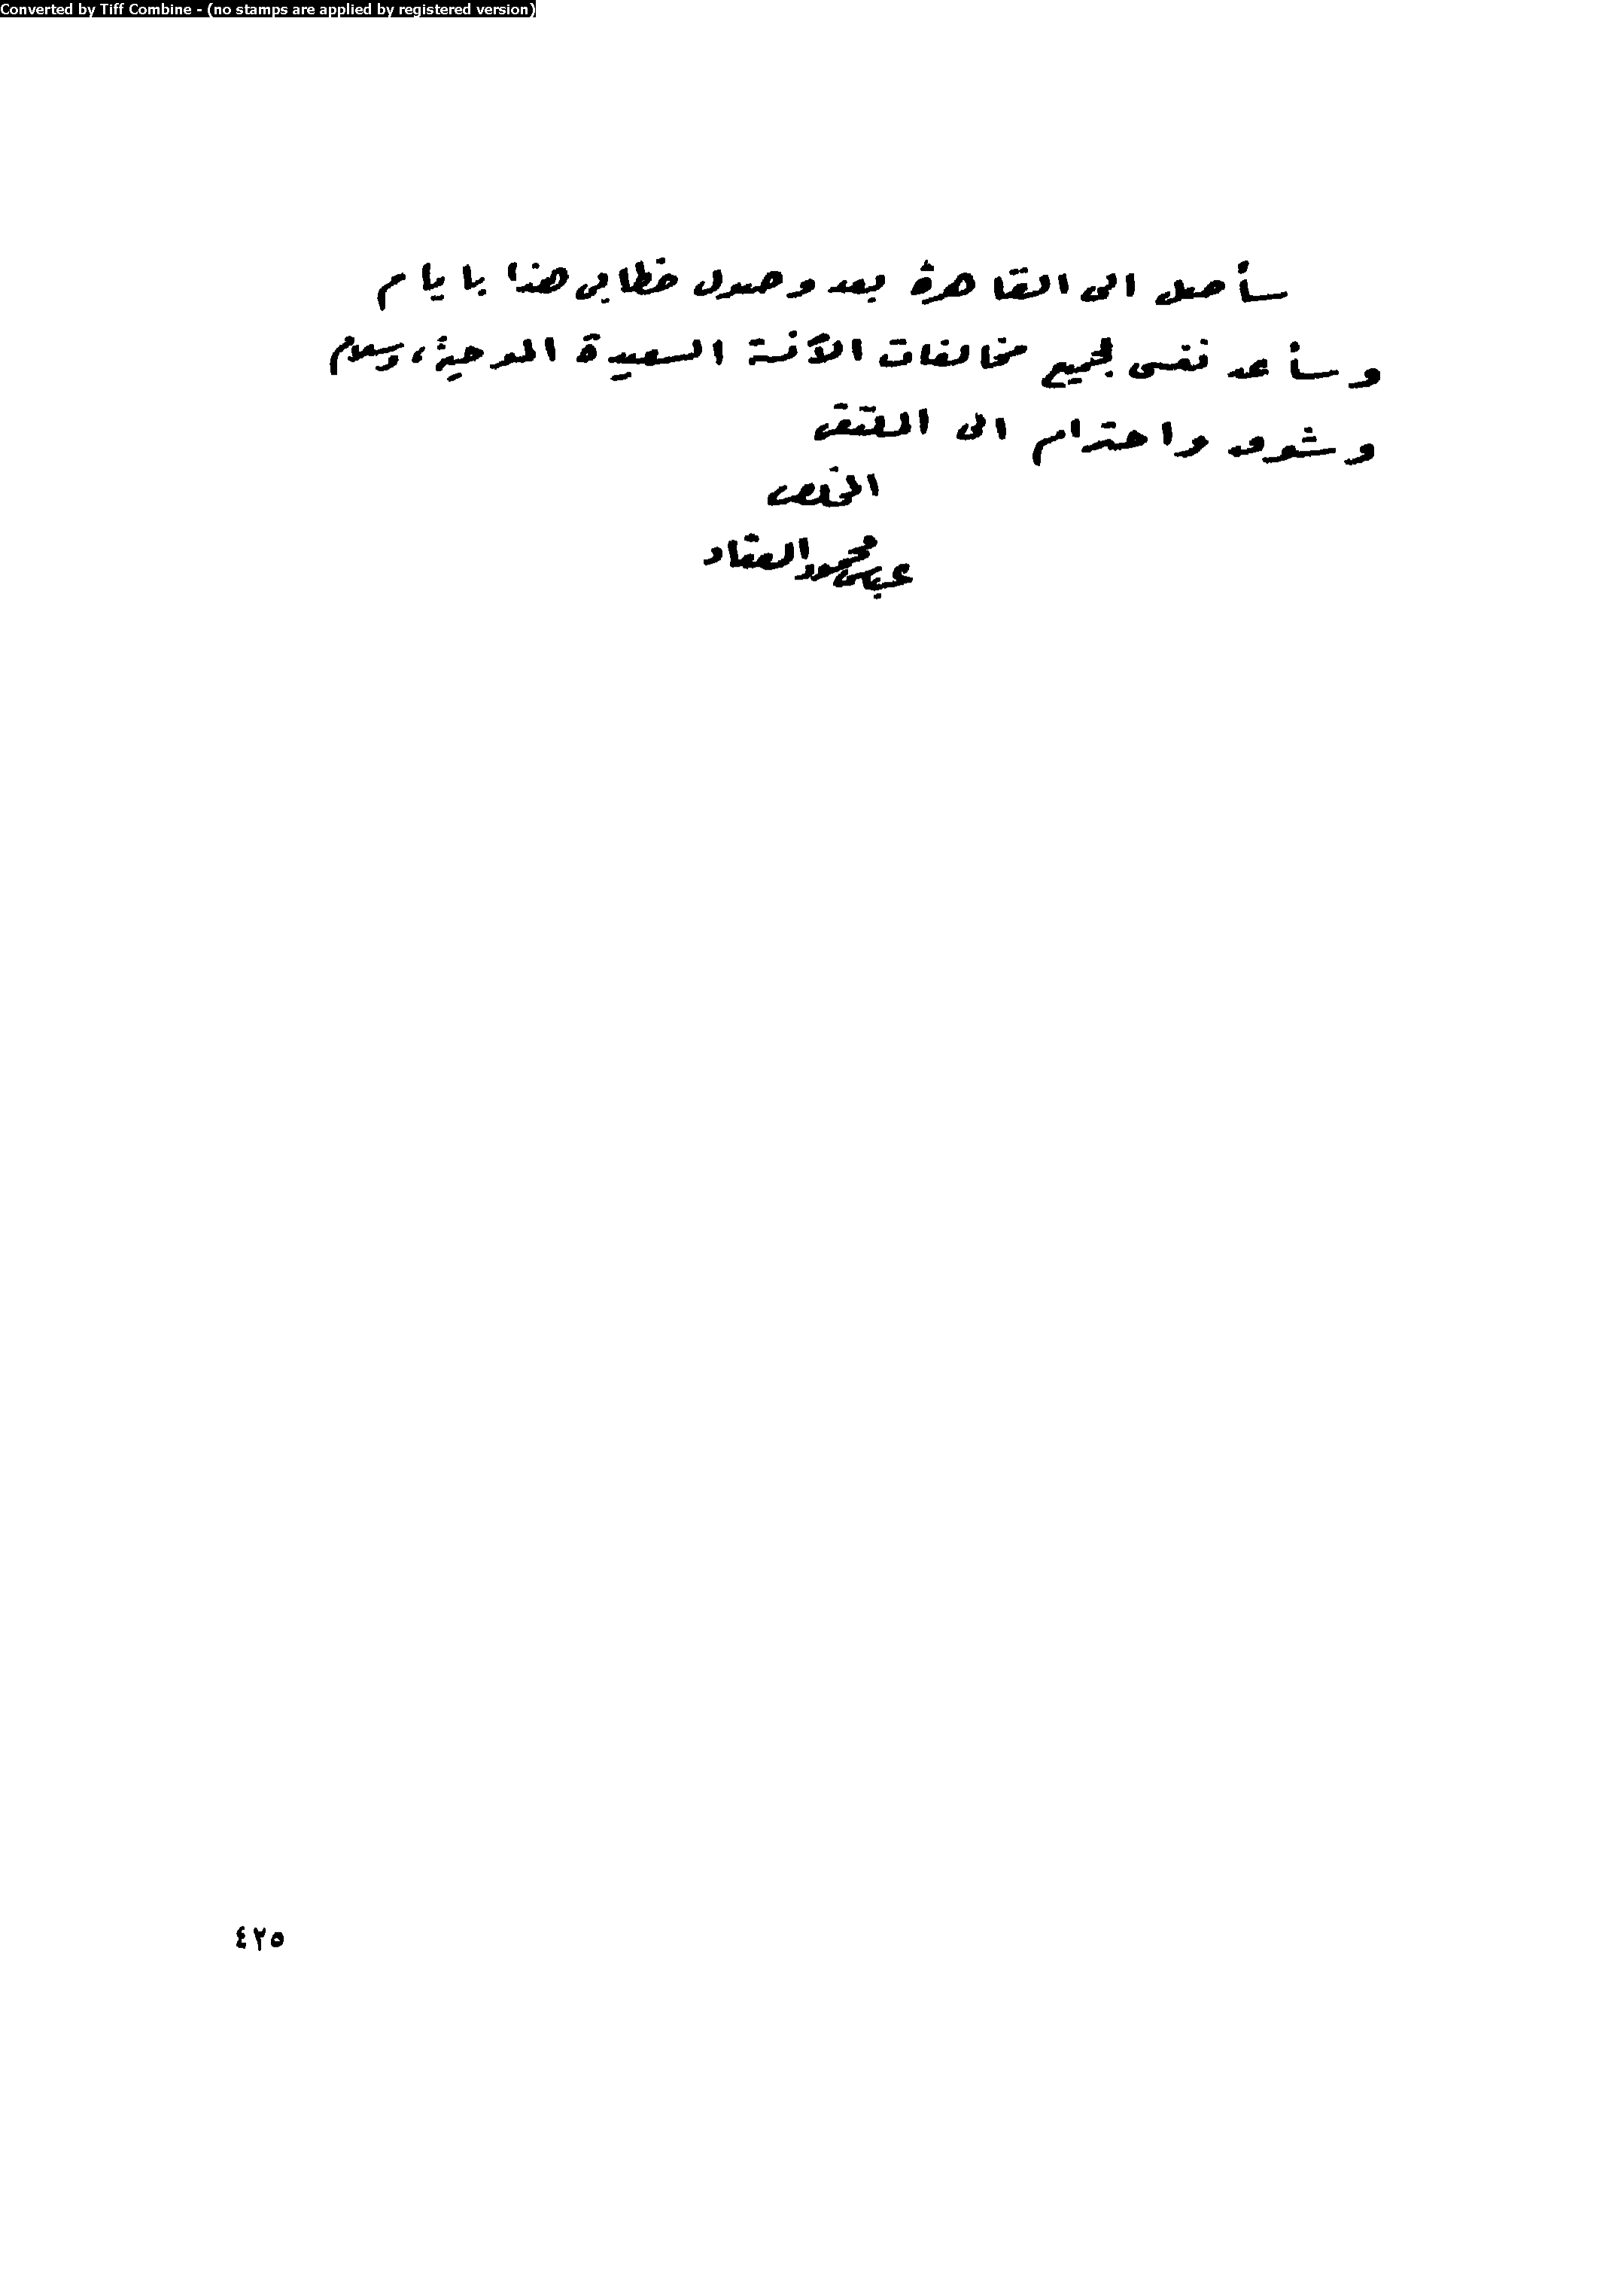 Converted by Tiff Combine - (no stamps are applied by registered version)
سأصل الى القاهرة بعد وصول خطابى هذا بايام
وسأعد نفسى لجميع مخالفات الآنسة السعيدة الموحية، وسلام
وشوق واحترام الى الملتقى
المخلص
عباس محمود العقاد
٤٢٥